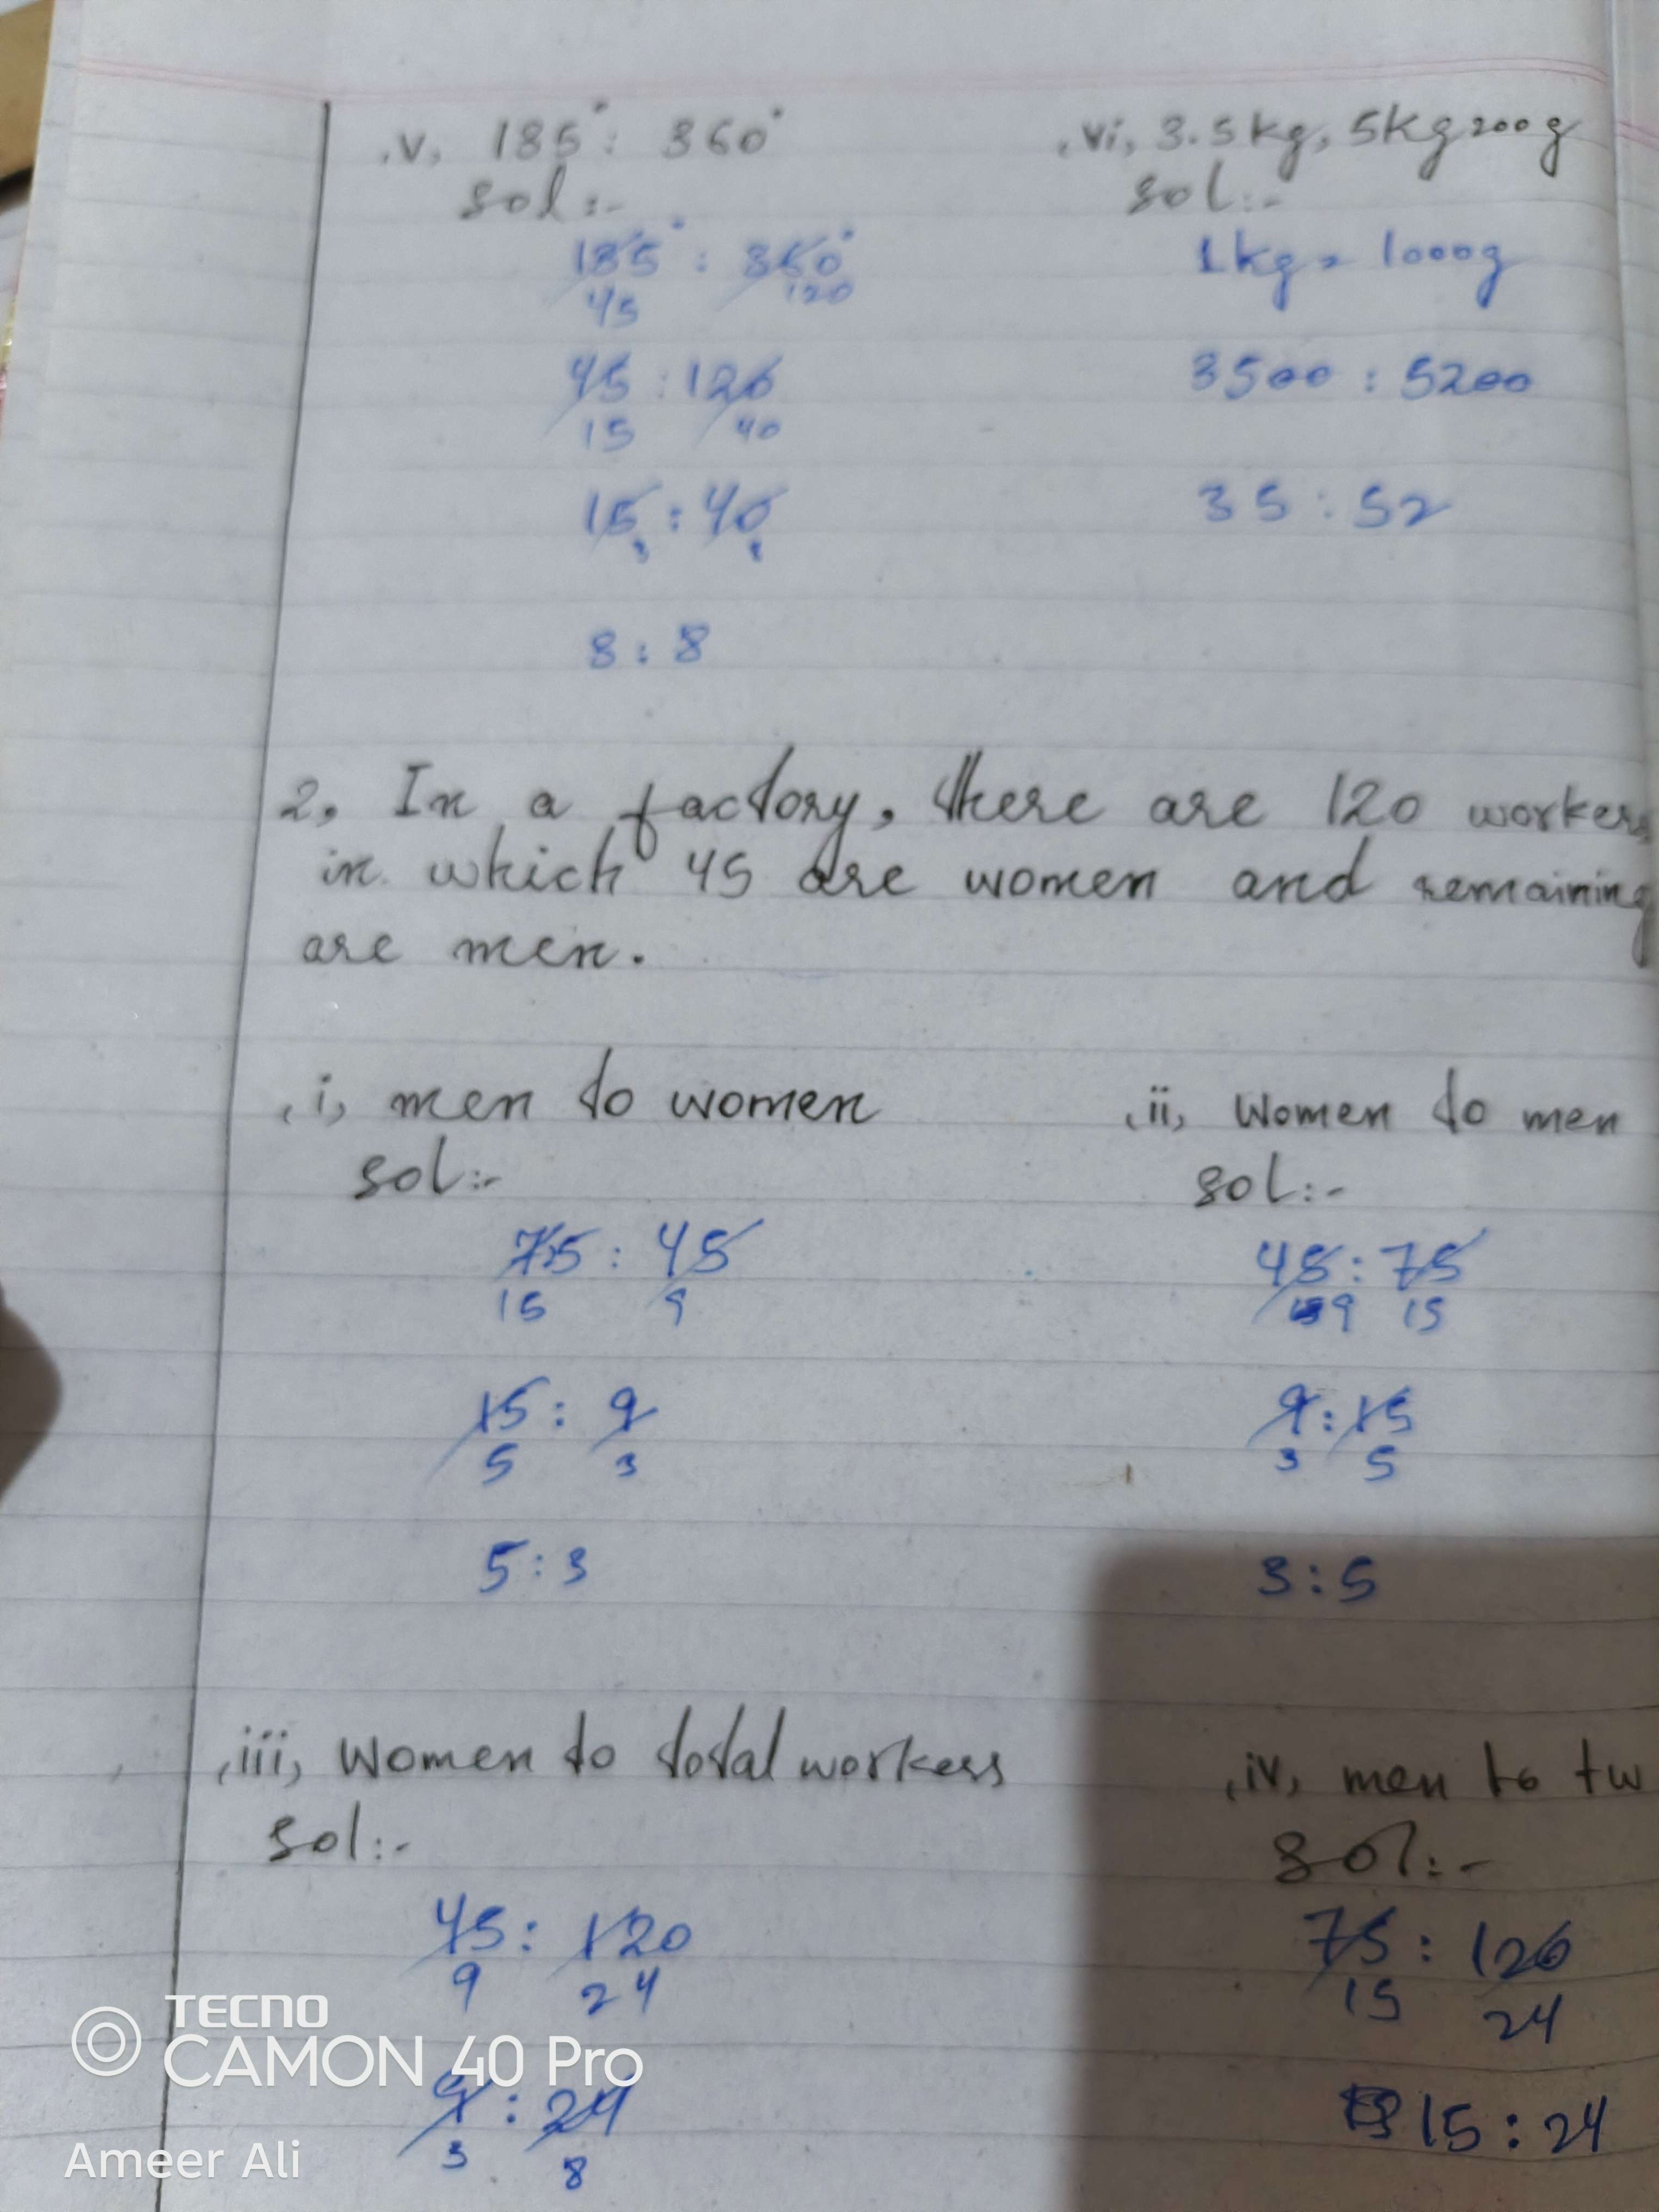 (v) 185° : 360°
sol:-
185° : 360°
45 120
45 : 120
15 40
15 : 40
3 8
8 : 8
(vi) 3.5kg, 5kg 200g
sol:-
1kg = 1000g
3500 : 5200
35 : 52
2, In a factory, there are 120 workers
in which 45 are women and remaining
are men.
(i) men to women
sol:-
75 : 45
15 9
15 : 9
5 3
5 : 3
(ii) Women to men
sol:-
45 : 75
9 15
9 : 15
3 5
3 : 5
(iii) Women to total workers
sol:-
45 : 120
9 24
9 : 24
3 8
(iv) men to tw
sol:-
75 : 120
15 24
15 : 24
TECNO
CAMON 40 Pro
Ameer Ali